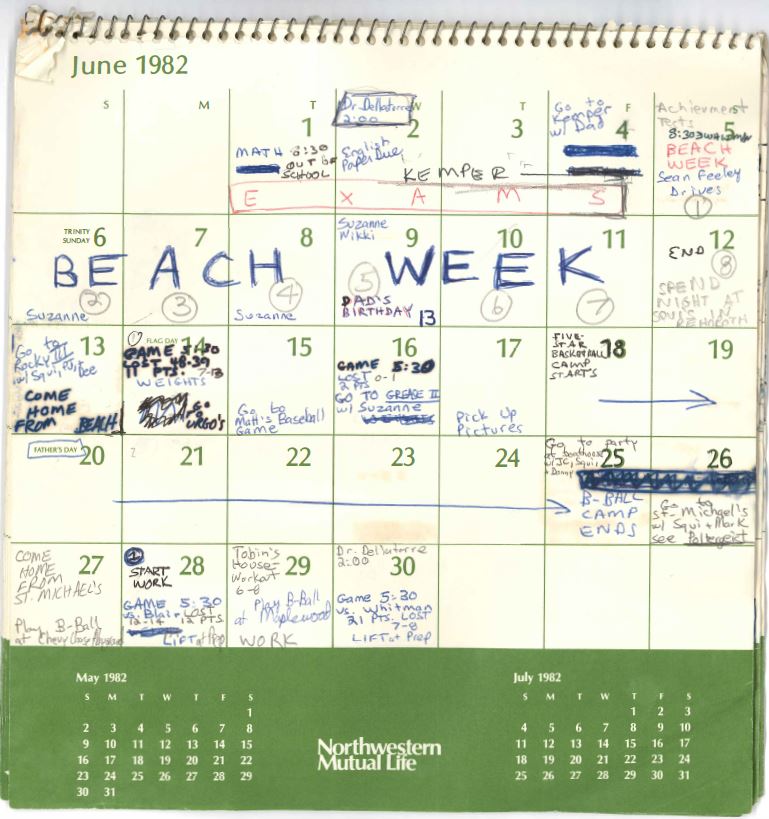 June 1982
S M T W T F S
1
MATH 8:30
OUT OF
SCHOOL
Dr. Dellatorre
2:00
2
English
Paper Due
3
KEMPER
Go to
Kemper
w/ Dad
4
E X A M S
Achievement
Tests
5
8:30
BEACH
WEEK
Sean Feeley
Drives
1
TRINITY
SUNDAY 6
7
8
Suzanne
Nikki
9
10
11
12
BEACH WEEK
2
Suzanne
3
4
Suzanne
5
DAD'S
BIRTHDAY
13
6
7
END
8
SPEND
NIGHT AT
SQUI'S IN
REHOBOTH
13
Go to
Rocky III
w/ Squi, PJ, Bee
COME
HOME
FROM BEACH
1
FLAG DAY 14
GAME 5:30
LOST 48-39
11 PTS.
WEIGHTS
GO
TO
URGO'S
15
Go to
Matt's Baseball
Game
16
GAME 5:30
LOST 0-1
2 PTS
GO TO GREASE II
w/ Suzanne
17
Pick Up
Pictures
FIVE-
STAR
BASKETBALL
CAMP
STARTS
18
19
FATHER'S DAY
20
21
22
23
24
Go to party
at boathouse
w/ JC, Squi,
+ Donny
25
B-BALL
CAMP
ENDS
26
Go to
St. Michael's
w/ Squi + Mark
see Poltergeist
27
COME
HOME
FROM
ST. MICHAEL'S
Play B-Ball
at Chevy Chase
1
28
START
WORK
GAME 5:30
vs. Blair LOST
12-14 12 PTS.
LIFT at Prep
29
Tobin's
House-
Workout
6-8
Play B-Ball
at Maplewood
WORK
Dr. Dellatorre
2:00
30
Game 5:30
vs. Whitman
21 PTS. LOST
7-8
LIFT at Prep
May 1982
S M T W T F S
1
2 3 4 5 6 7 8
9 10 11 12 13 14 15
16 17 18 19 20 21 22
23 24 25 26 27 28 29
30 31
Northwestern
Mutual Life
July 1982
S M T W T F S
1 2 3
4 5 6 7 8 9 10
11 12 13 14 15 16 17
18 19 20 21 22 23 24
25 26 27 28 29 30 31